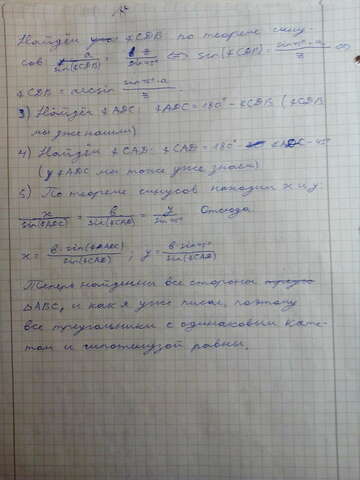 Найдём ∠CDB по теореме сину-
сов: a/sin(∠CDB) = z/sin45° ⇔ sin(∠CDB) = sin45°·a/z ⇔
∠CDB = arcsin sin45°·a/z.
3) Найдём ∠ADC: ∠ADC = 180° - ∠CDB (∠CDB
мы уже нашли)
4) Найдём ∠CAD: ∠CAD = 180° - ∠ADC - 45°
(∠ADC мы тоже уже знаем)
5) По теореме синусов находим x и y:
x/sin(∠ADC) = b/sin(∠CAD) = y/sin45° Отсюда
x = b·sin(∠ADC)/sin(∠CAD); y = b·sin45°/sin(∠CAD)
Теперь найдены все стороны
△ABC, и как я уже писал, поэтому
все треугольники с одинаковым кате-
том и гипотенузой равны.